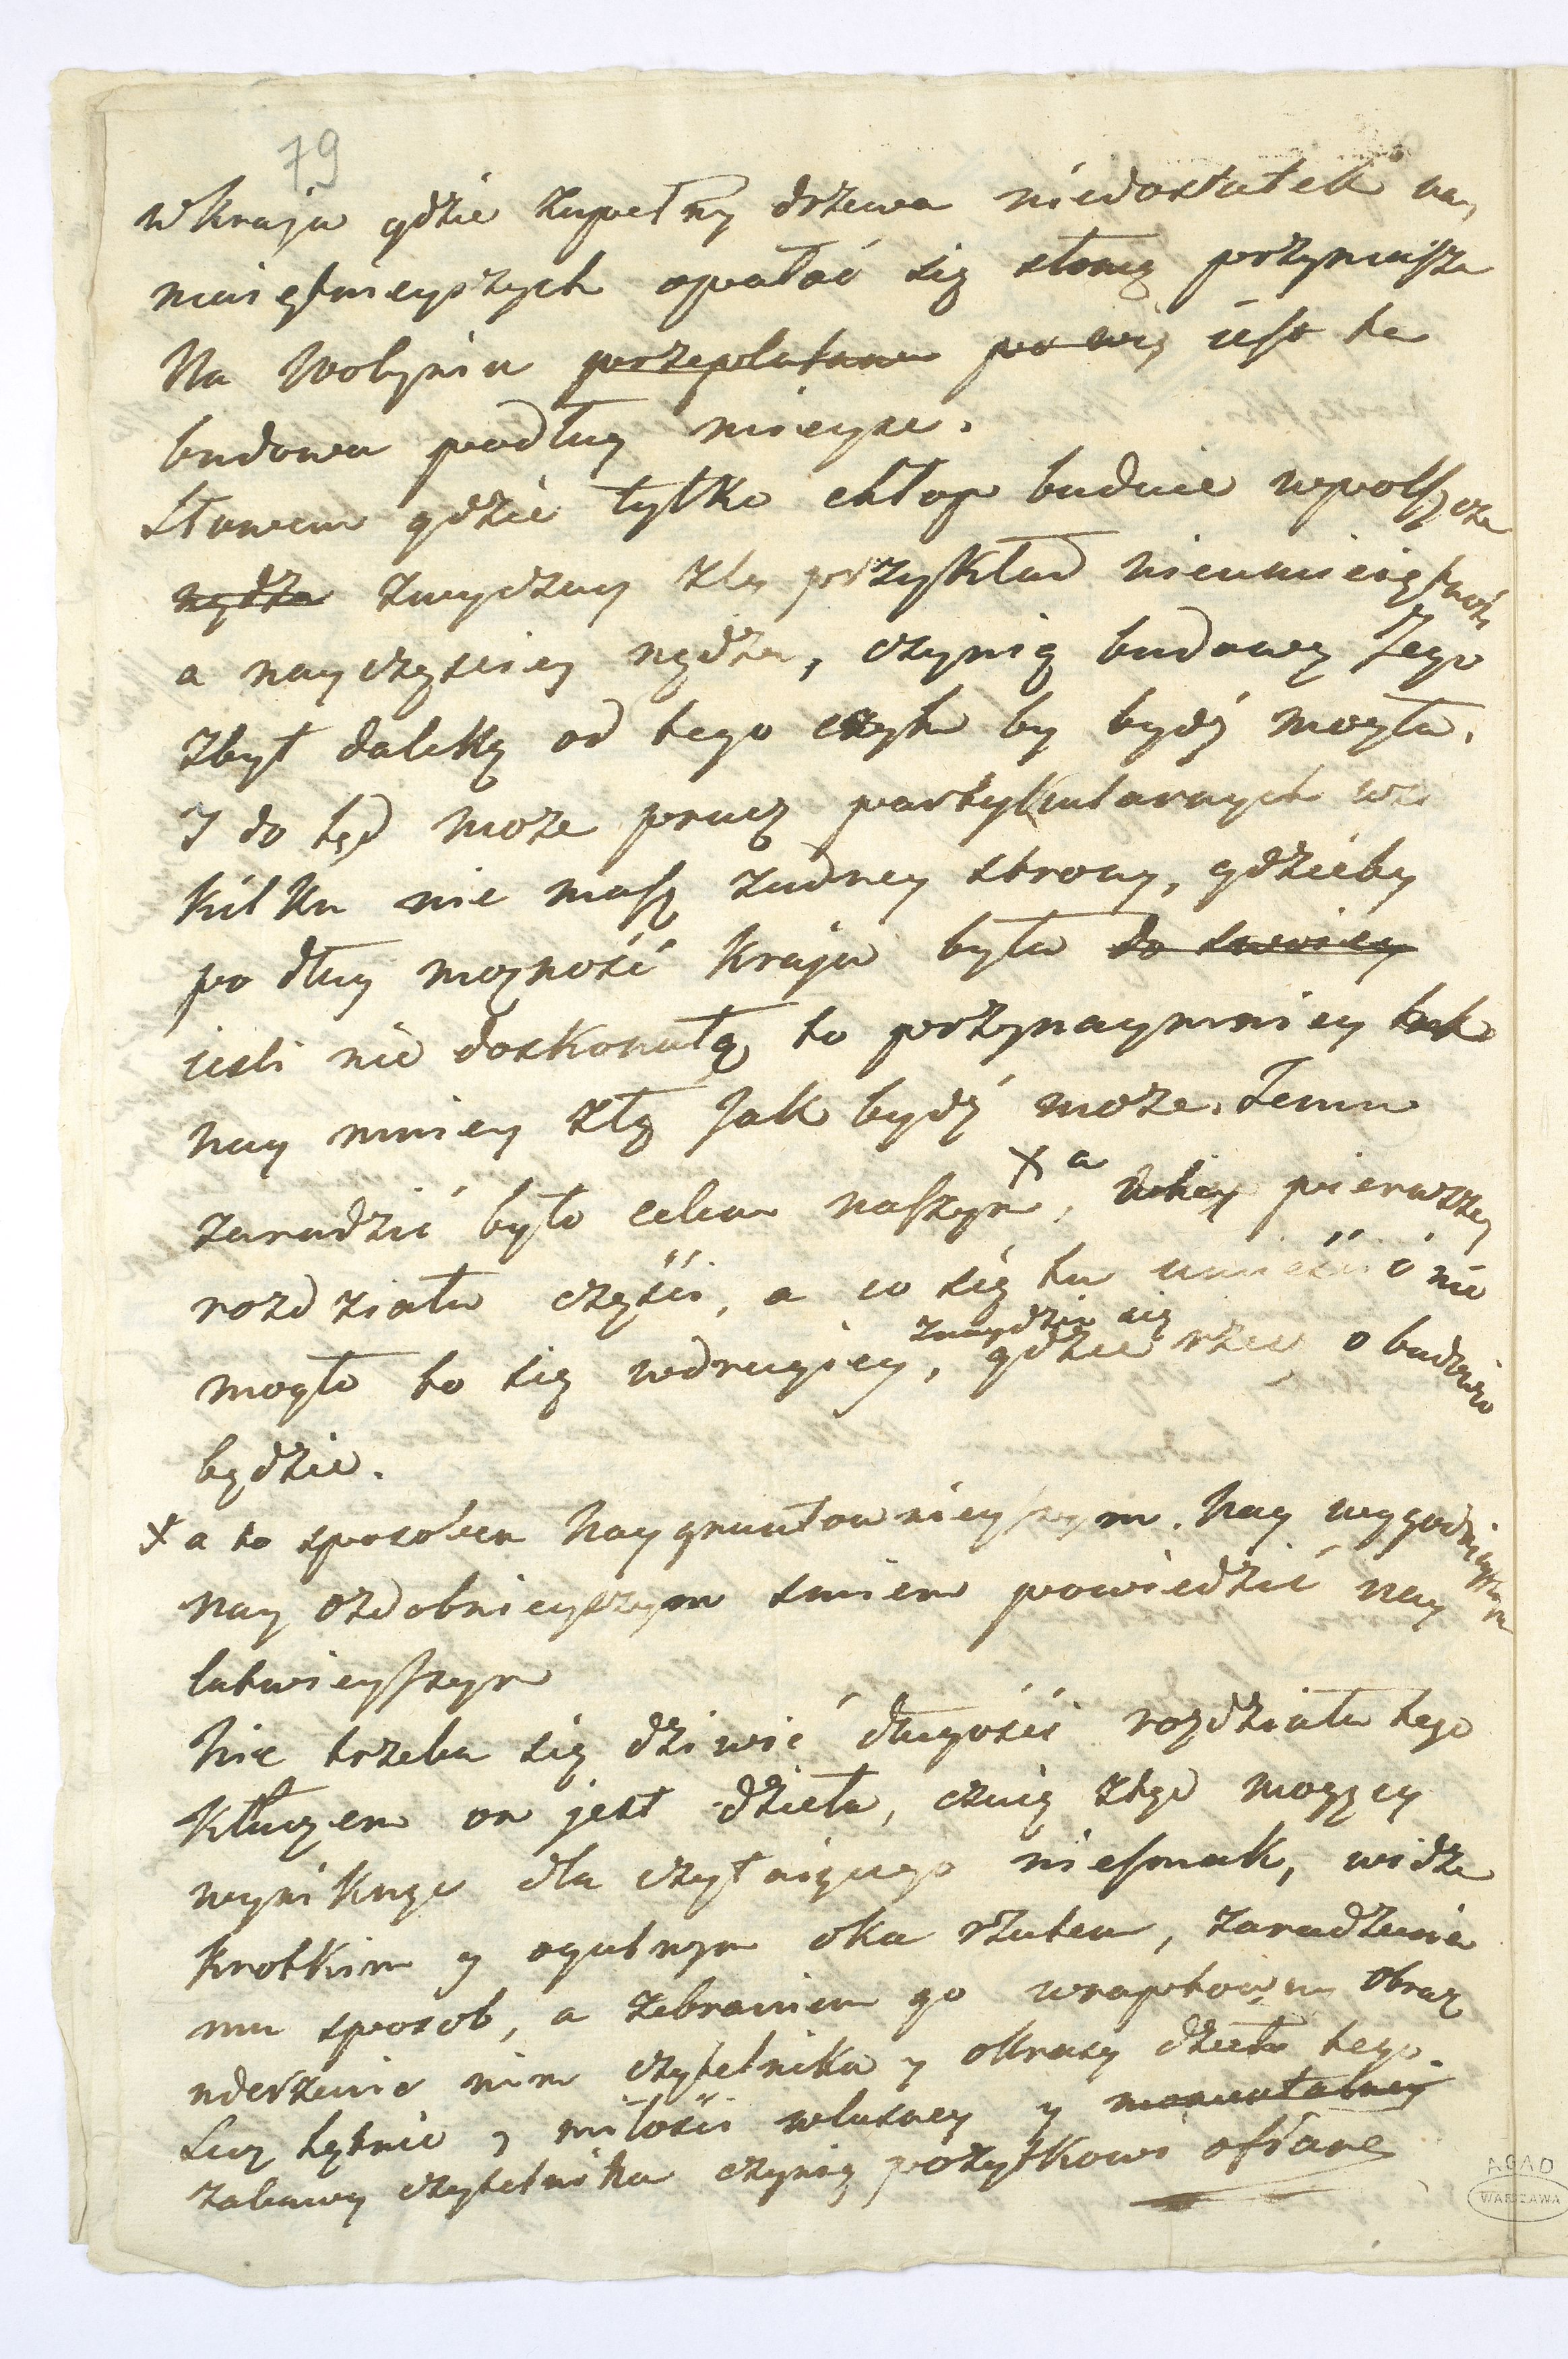 79
w kraju gdzie zupełny drzewa niedostatek nay
maiętnieyszych opałać się słomą przymusza
Na Wołyniu przeplatana powię iest ta
budowa podług mieysc.
Słowem gdzie tylko chłop buduie w polszcze
nędza zwyczay zły przykład nieumieiętność
a nayczęściey nędza, czynią budowę Jego
zbyt daleką od tego czyby być mogła.
I do tąd może prucz partykularnych wsi
kilku nie masz żadney strony, gdzieby
podług możność kraju była do swoiey
ieśli nie doskonałą to przynaymniey tak
nay mniey złą jak bydź może. Temu
zaradzić było celem naszym x, a pierwszey
rozdziału części, a co się tu umieścić nie
mogło to się w drugiey, znaydzie się gdzie rzecz o budowie
będzie.
x a to sposobem naygruntownieyszym. nay wygodnieyszym
nay ozdobnieyszym smiem powiedzieć nay
łatwieyszym
Nie trzeba się dziwić długości rozdziału tego
kluczem on jest dzieła, czuię ztąd mogący
wyniknąć dla czytaiącego niesmak, widzę
krotkim y ogulnym oka rzutem, zaradzenia
mu sposob, a zebraniem go w raptowny obraz
uderzenie nim czytelnika y okrasy dzieła tego.
Lecz chętnie z miłości własney y
zabawy czytelnika czynię pożytkowi ofiarę
AGAD
WARSZAWA